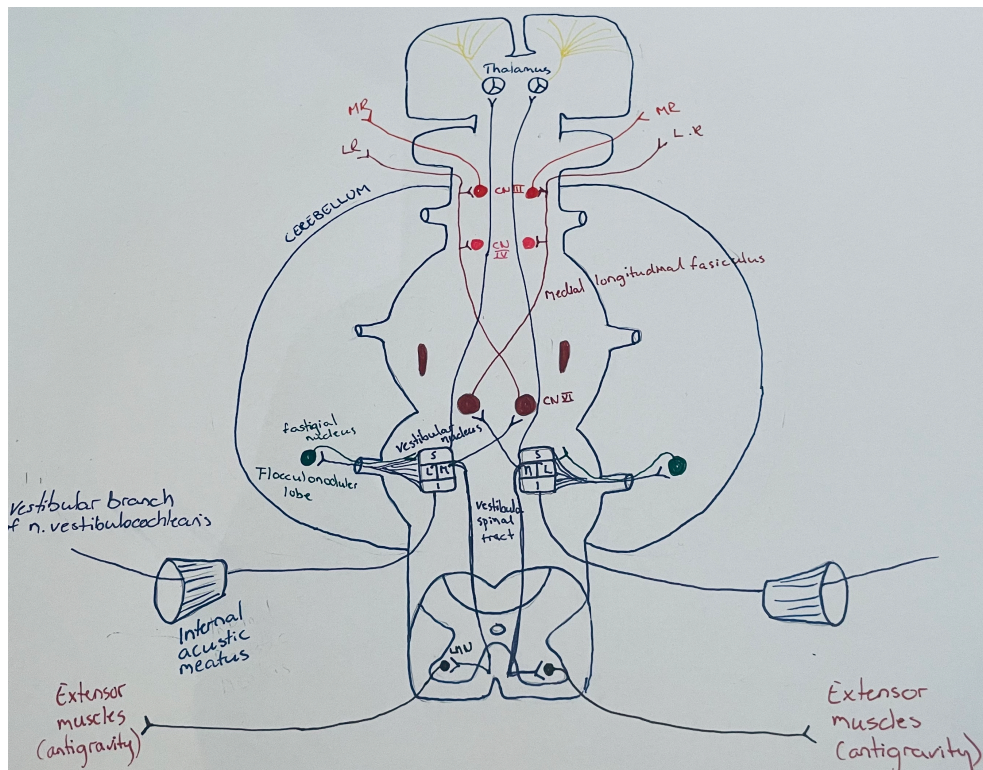 Thalamus
MR
MR
LR
L.R
CN III
CEREBELLUM
CN
IV
Medial longitudinal fasiculus
CN VI
fastigial
nucleus
vestibular
nucleus
S
L M
I
S
M L
I
Flocculonoduler
lobe
vestibular branch
of n. vestibulocochlearis
vestibulo
spinal
tract
Internal
acustic
meatus
LMN
Extensor
muscles
(antigravity)
Extensor
muscles
(antigravity)